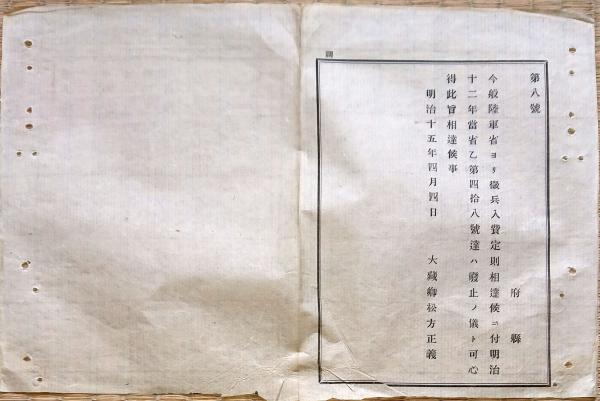 第八號
府縣
今般陸軍省ヨリ徵兵入費定則相達候ニ付明治
十二年當省乙第四拾八號達ハ廢止ノ儀ト可心
得此旨相達候事
明治十五年四月四日
大藏卿松方正義